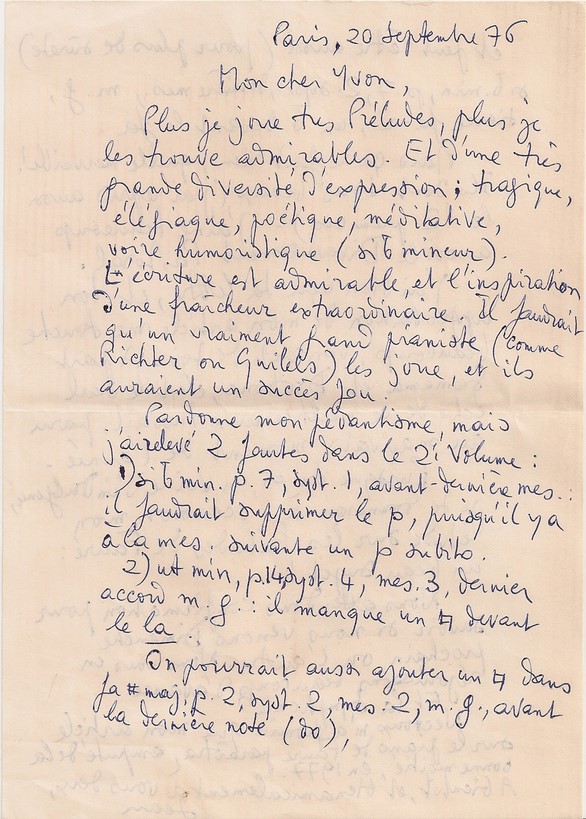 Paris, 20 Septembre 76
Mon cher Yvon,
Plus je joue tes Préludes, plus je
les trouve admirables. Et d'une très
grande diversité d'expression ; tragique,
élégiaque, poétique, méditative,
voire humoristique (si b mineur).
L'écriture est admirable, et l'inspiration
d'une fraîcheur extraordinaire. Il faudrait
qu'un vraiment grand pianiste (comme
Richter ou Guilels) les joue, et ils
auraient un succès fou.
Pardonne mon pédantisme, mais
j'ai relevé 2 fautes dans le 2è Volume :
1) si b min. p. 7, syst. 1, avant-dernière mes. :
il faudrait supprimer le p, puisqu'il y a
à la mes. suivante un p subito.
2) ut min, p.14, syst. 4, mes. 3, dernier
accord m. g. : il manque un ♮ devant
le la.
On pourrait aussi ajouter un ♮ dans
fa # maj. p. 2, syst. 2, mes. 2, m. g., avant
la dernière note (do),